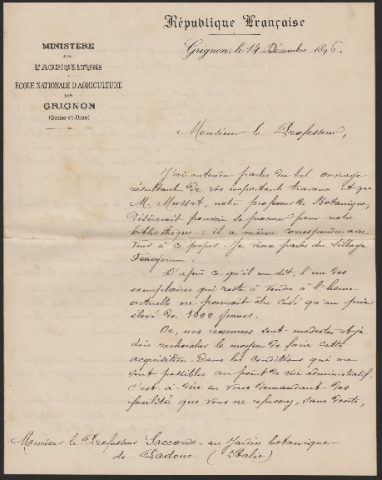 République Française
Grignon, le 14 Décembre 1896.
MINISTÈRE
DE
L'AGRICULTURE
ÉCOLE NATIONALE D'AGRICULTURE
DE
GRIGNON
(Seine-et-Oise)
Monsieur le Professeur,
J'ai entendu parler du bel ouvrage
résultant de vos importants travaux et que
M. Mussat, notre professeur de Botanique,
désirerait pouvoir se procurer pour notre
bibliothèque; il a même correspondu avec
vous à ce propos. Je veux parler du Sylloge
Fungorum.
D'après ce qu'il m'a dit, l'un des
exemplaires qui reste à vendre à l'heure
actuelle ne pouvait être cédé qu'au prix
élevé de 1000 francs.
Or, nos ressources sont modestes et je
dois rechercher le moyen de faire cette
acquisition dans les conditions qui me
sont possibles au point de vue administratif,
c'est à dire en vous demandant des
facilités que vous ne refuserez, sans doute,
Monsieur le Professeur Saccardo au Jardin botanique
de Padoue (Italie)